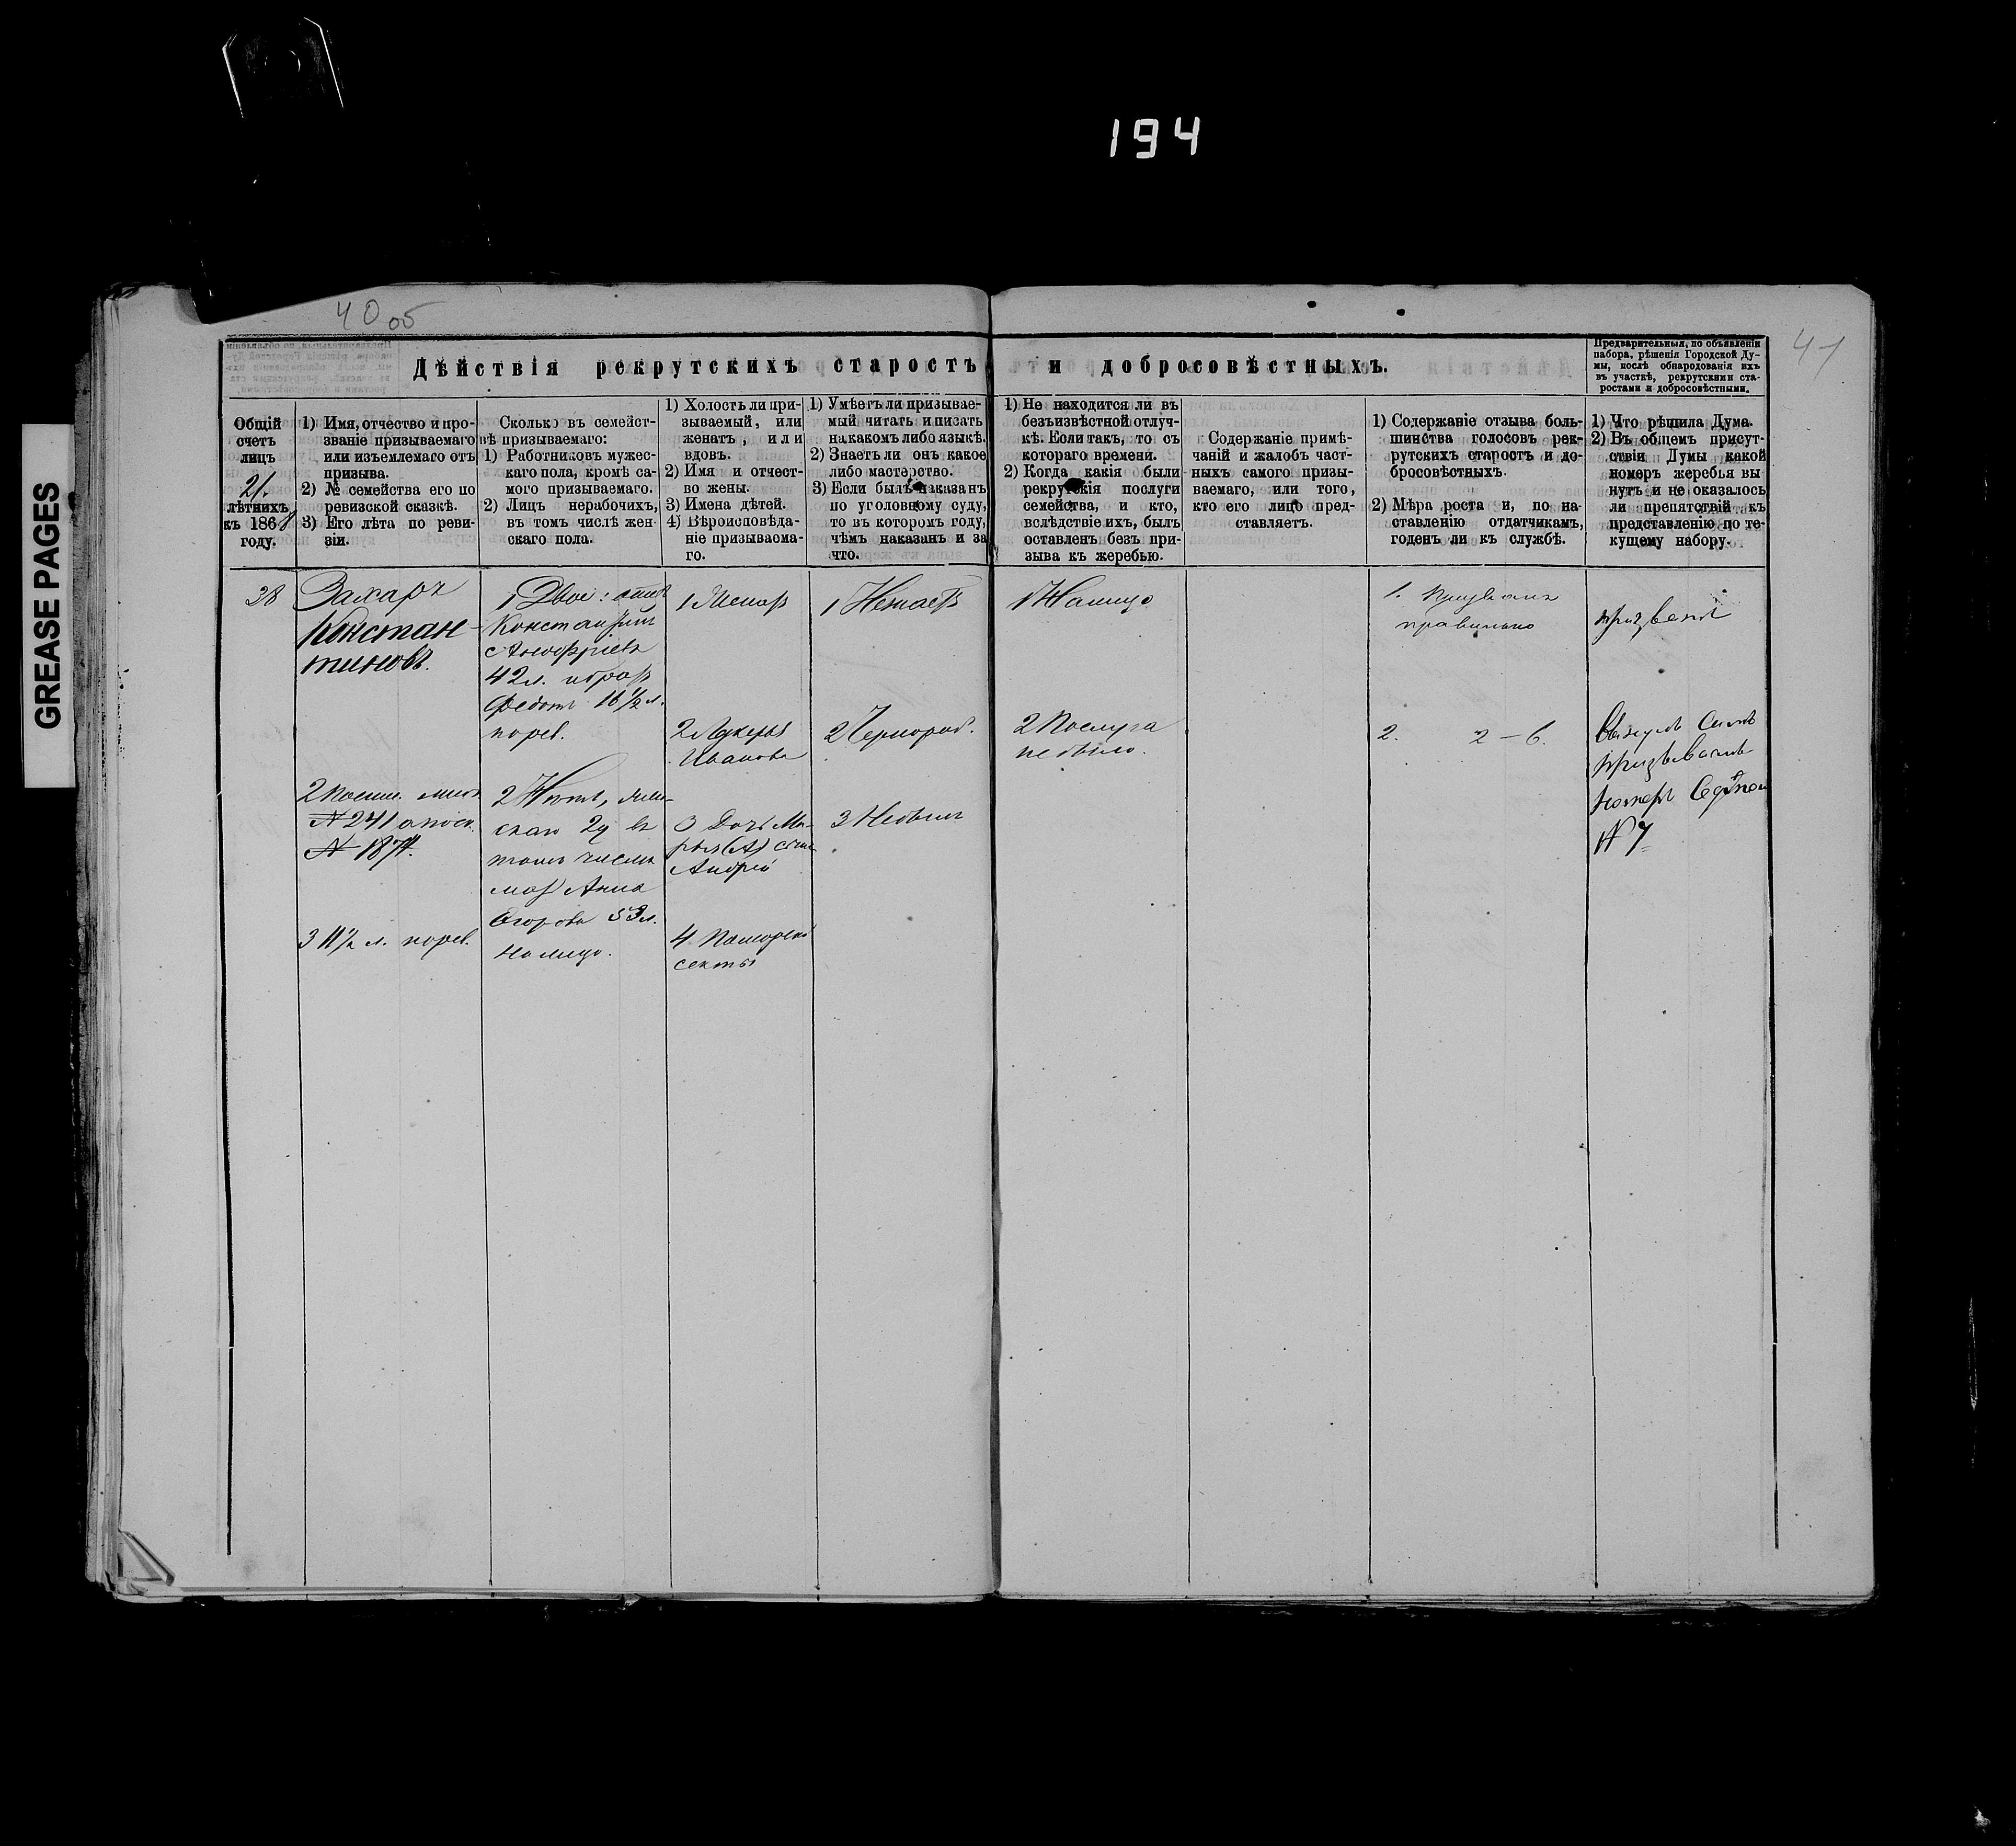 194
GREASE PAGES
40 об
41
Дѣйствія рекрутскихъ старостъ и добросовѣстныхъ.
Предварительныя, по объявленіи
набора, рѣшенія Городской Ду-
мы, послѣ обнародованія ихъ
въ участкѣ, рекрутскими ста-
ростами и добросовѣстными.
Общій
счетъ
лицъ
21.
лѣтнихъ
къ 1868
году.
1) Имя, отчество и про-
званіе призываемаго
или изъемлемаго отъ
призыва.
2) № семейства его по
ревизской сказкѣ.
3) Его лѣта по реви-
зіи.
Сколько въ семейст-
вѣ призываемаго:
1) Работниковъ мужес-
каго пола, кромѣ са-
мого призываемаго.
2) Лицъ нерабочихъ,
въ томъ числѣ жен-
скаго пола.
1) Холостъ ли при-
зываемый, или
женатъ, или
вдовъ.
2) Имя и отчест-
во жены.
3) Имена дѣтей.
4) Вѣроисповѣда-
ніе призываема-
го.
1) Умѣетъ ли призывае-
мый читать и писать
на какомъ либо языкѣ.
2) Знаетъ ли онъ какое
либо мастерство.
3) Если былъ наказанъ
по уголовному суду,
то въ которомъ году,
чѣмъ наказанъ и за
что.
1) Не находится ли въ
безъизвѣстной отлуч-
кѣ. Если такъ, то съ
котораго времени.
2) Когда какія были
рекрутскія послуги
семейства, и кто,
вслѣдствіе ихъ, былъ
оставленъ безъ при-
зыва къ жеребью.
Содержаніе примѣ-
чаній и жалобъ част-
ныхъ самого призы-
ваемаго, или того,
кто его лицо пред-
ставляетъ.
1) Содержаніе отзыва боль-
шинства голосовъ рек-
рутскихъ старостъ и до-
бросовѣстныхъ.
2) Мѣра роста и, по на-
ставленію отдатчикамъ,
годенъ ли къ службѣ.
1) Что рѣшила Дума.
2) Въ общемъ присут-
ствіи Думы какой
номеръ жеребья вы
нутъ и не оказалось
ли препятствій къ
представленію по те-
кущему набору.
38
Захаръ
Констан-
тиновъ.
№ 241
№ 1874.
3 11½ л. норев.
1 Двое: отецъ
Константинъ
42 л. и братъ
Федотъ 16½ л.
норев.
2 Нѣтъ, жен-
скаго 2 въ
томъ числѣ
мать Анна
Егорова 53 л.
на лицо.
1 Женатъ
2 Лукерья
Иванова
3 Дочь Ма-
рья сынъ
Андрей
4 Поморской
секты
1 Незнаетъ
2 Чернораб.
3 Небылъ
1 На лицо
2 Послуга
не было.
1. Призванъ
правильно
2. 2 – 6.
призвать
Вынулъ Самъ
призываемый
номеръ Седьмой
№ 7